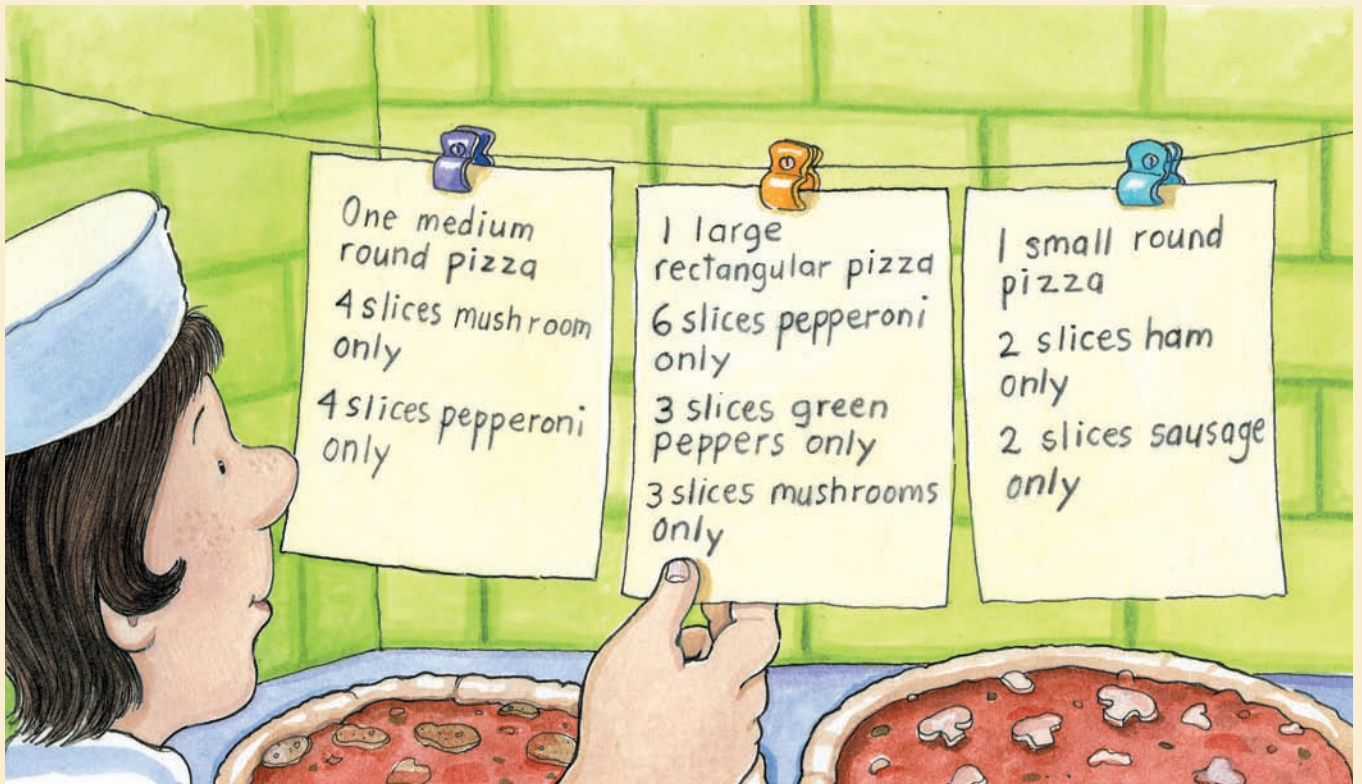 One medium
round pizza
4 slices mushroom
only
4 slices pepperoni
only
1 large
rectangular pizza
6 slices pepperoni
only
3 slices green
peppers only
3 slices mushrooms
only
1 small round
pizza
2 slices ham
only
2 slices sausage
only